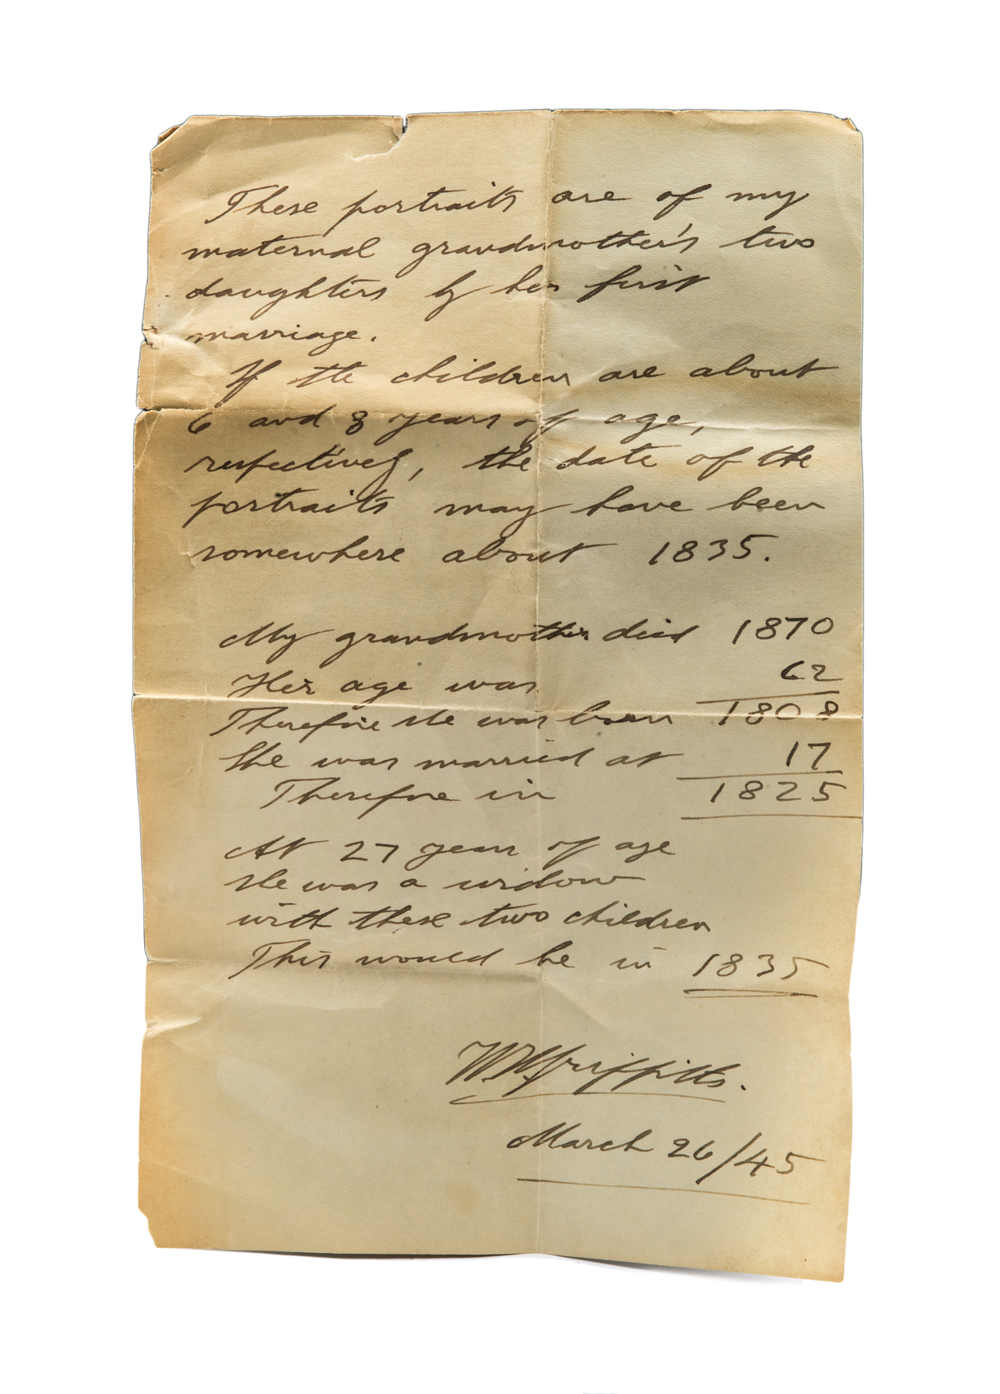 These portraits are of my
maternal grandmother's two
daughters by her first
marriage.
If the children are about
6 and 8 years of age,
respectively, the date of the
portraits may have been
somewhere about 1835.
My grandmother died 1870
Her age was 62
Therefore she was born 1808
She was married at 17
Therefore in 1825
At 27 years of age
she was a widow
with these two children
This would be in 1835
W.H. Griffitts.
March 26/45